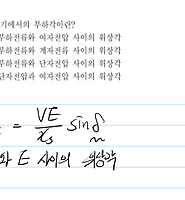 기에서의 부하각이란?
부하전류와 여자전압 사이의 위상각
부하전류와 계자전류 사이의 위상각
부하전류와 단자전압 사이의 위상각
단자전압과 여자전압 사이의 위상각
= VE/xs sin δ
와 E 사이의 위상각